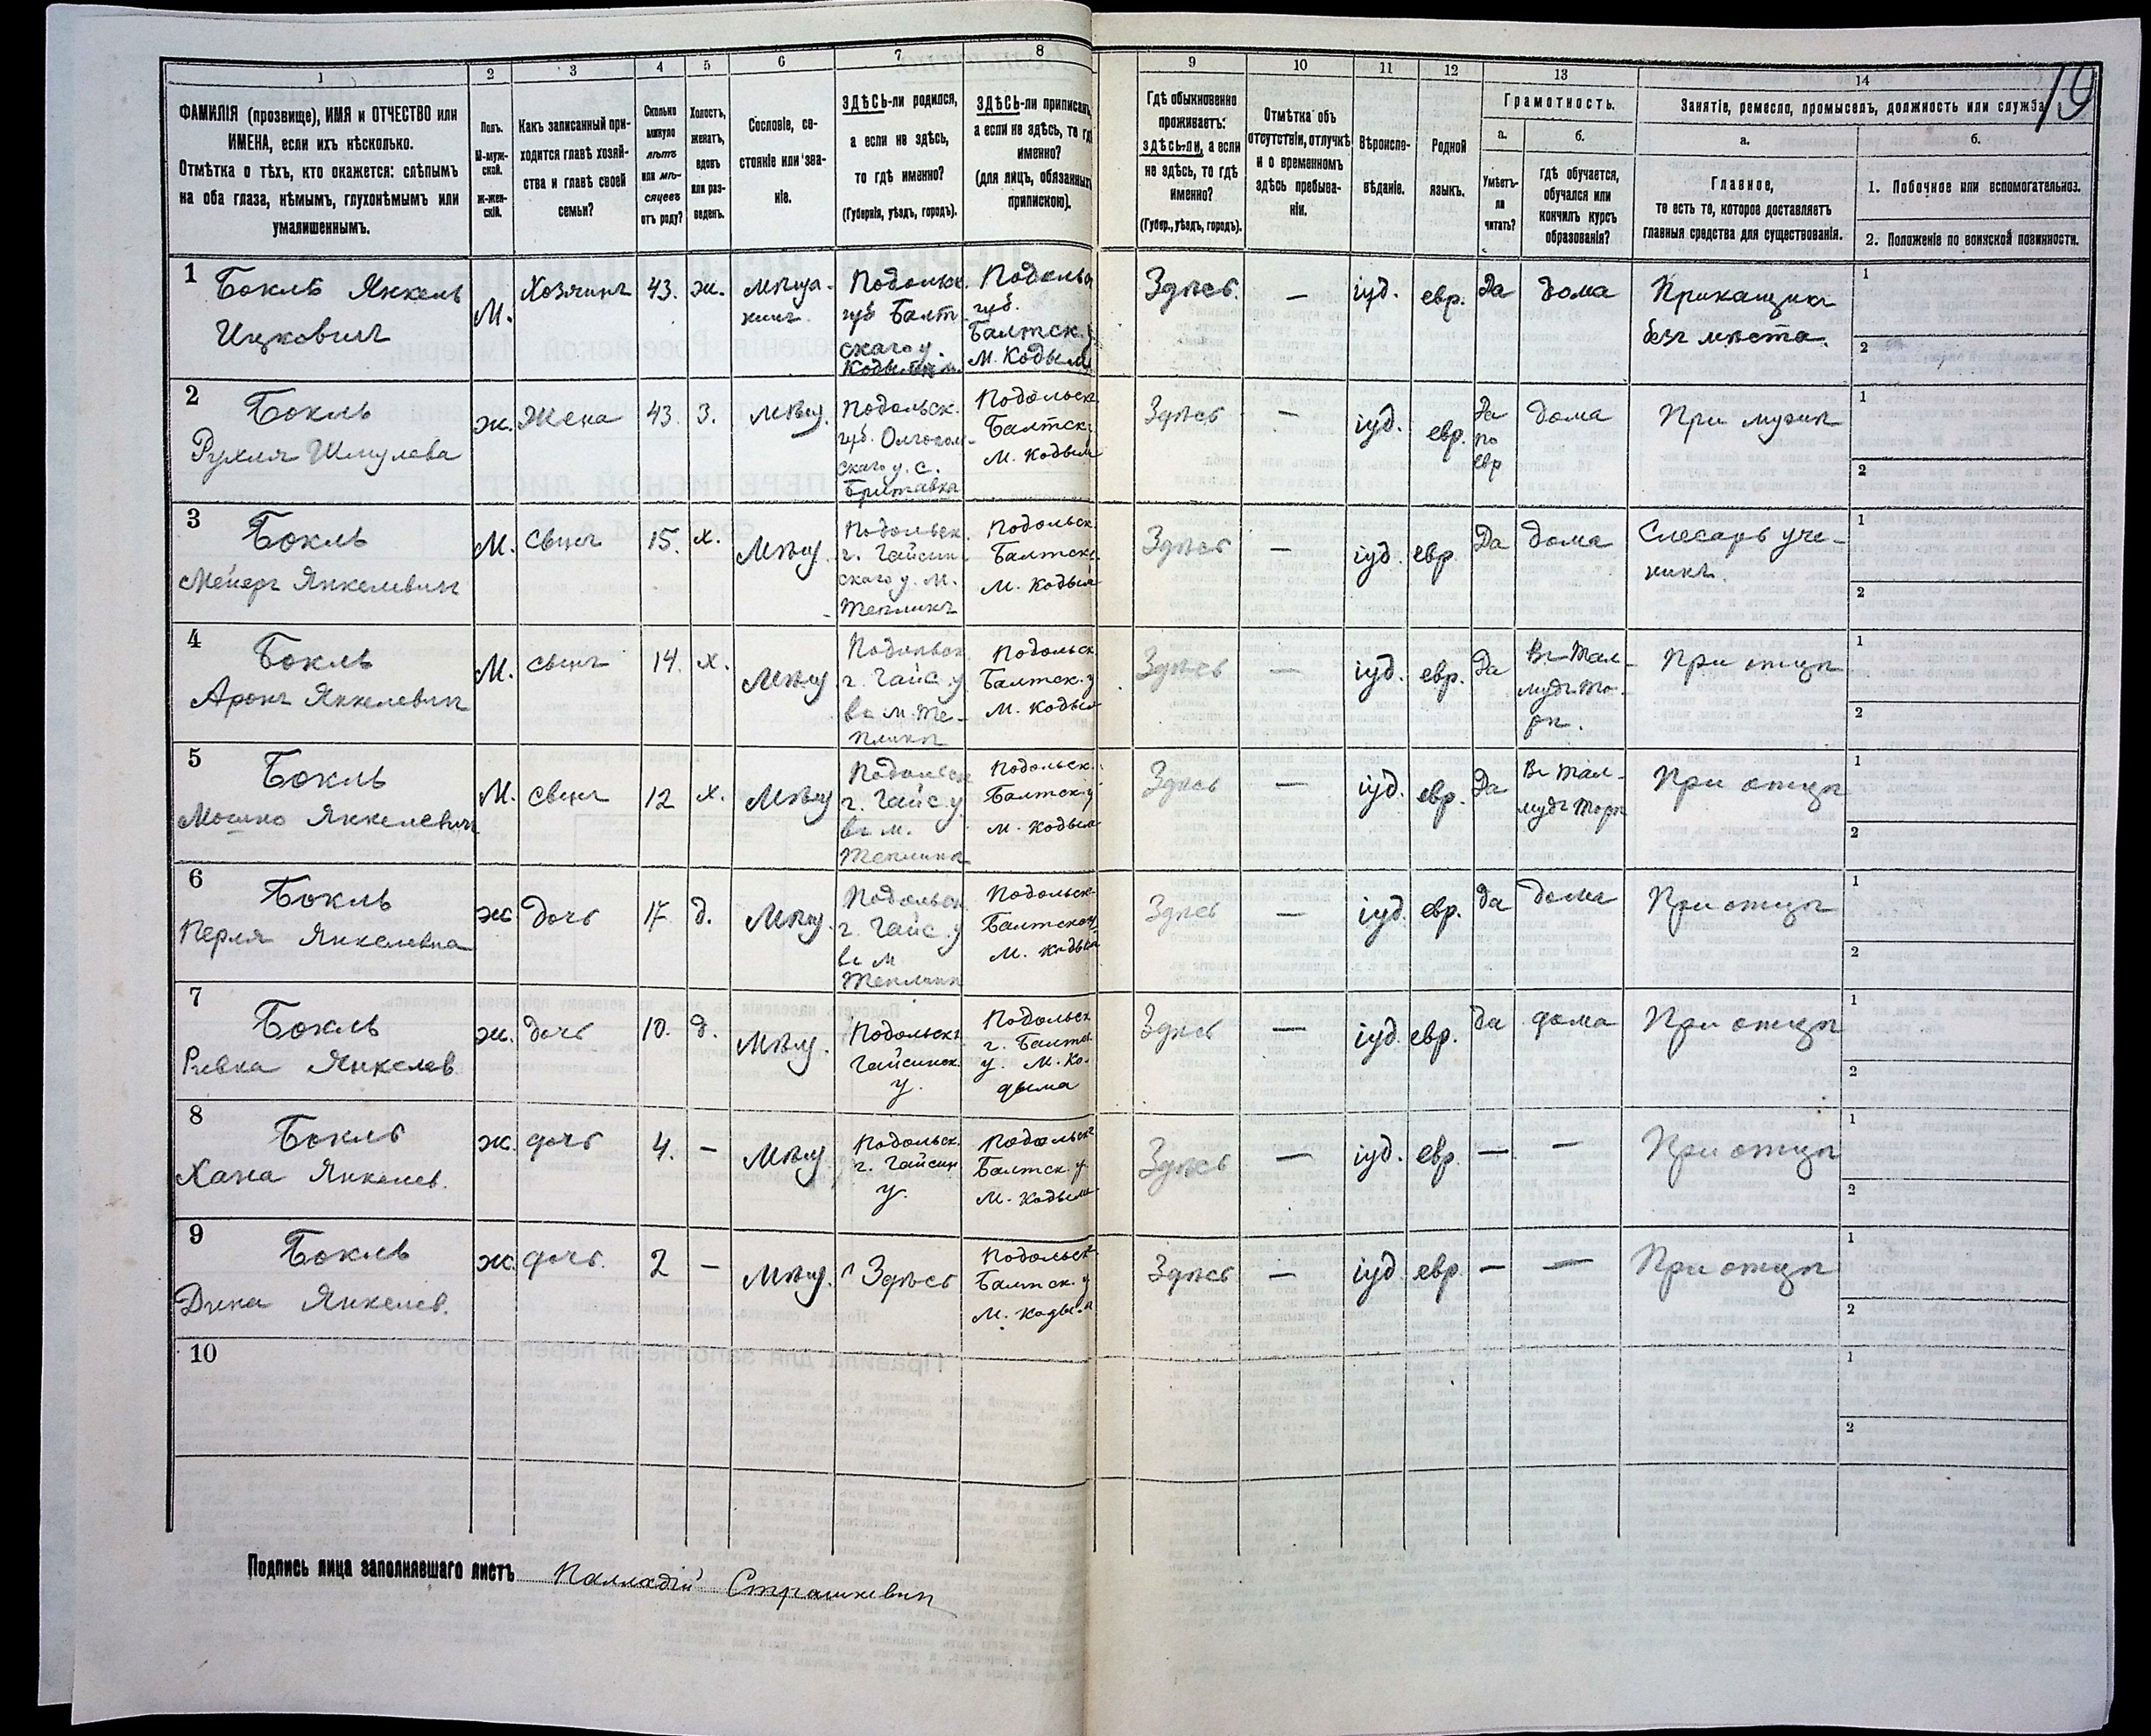 1
2
3
4
5
6
7
8
9
10
11
12
13
14
19
ФАМИЛІЯ (прозвище), ИМЯ и ОТЧЕСТВО или
ИМЕНА, если ихъ нѣсколько.
Отмѣтка о тѣхъ, кто окажется: слѣпымъ
на оба глаза, нѣмымъ, глухонѣмымъ или
умалишеннымъ.
Полъ.
М-муж-
ской.
ж-жен-
скій.
Какъ записанный при-
ходится главѣ хозяй-
ства и главѣ своей
семьи?
Сколько
минуло
лѣтъ
или мѣ-
сяцевъ
отъ роду?
Холостъ,
женатъ,
вдовъ
или раз-
веденъ.
Сословіе, со-
стояніе или зва-
ніе.
ЗДѢСЬ-ли родился,
а если не здѣсь,
то гдѣ именно?
(Губернія, уѣздъ, городъ).
ЗДѢСЬ-ли приписанъ,
а если не здѣсь, то гдѣ
именно?
(для лицъ, обязанныхъ
припискою).
Гдѣ обыкновенно
проживаетъ:
здѣсь-ли, а если
не здѣсь, то гдѣ
именно?
(Губер., уѣздъ, городъ).
Отмѣтка объ
отсутствіи, отлучкѣ
и о временномъ
здѣсь пребыва-
ніи.
Вѣроиспо-
вѣданіе.
Родной
языкъ.
Грамотность.
а.
б.
Умѣетъ-
ли
читать?
Гдѣ обучается,
обучался или
кончилъ курсъ
образованія?
Занятіе, ремесло, промыселъ, должность или служба.
а.
б.
Главное,
то есть то, которое доставляетъ
главныя средства для существованія.
1. Побочное или вспомогательное.
2. Положеніе по воинской повинности.
1
Бокль Янкель
Ицковичъ
М.
Хозяинъ
43.
ж.
мѣща-
нинъ
Подольск.
губ Балт-
скаго у.
Кодыма м.
Подольск
губ.
Балтск. у
м. Кодыма
Здѣсь.
—
іуд.
евр.
Да
дома
Прикащикъ
безъ мѣста.
1
2
2
Бокль
Рухля Шмулева
ж.
Жена
43.
З.
мѣщ.
Подольск.
губ. Ольгополь-
скаго у. с.
Бритавка
Подольск
Балтск.
м. Кодыма
Здѣсь
—
іуд.
евр.
Да
по
евр
дома
При мужѣ
1
2
3
Бокль
Мейеръ Янкелевичъ
М.
сынъ
15.
х.
Мѣщ.
Подольск.
г. Гайсин-
скаго у. м.
Тепликъ
Подольск.
Балтск.
м. Кодыма
Здѣсь
—
іуд.
евр.
Да
дома
Слесарь уче-
никъ.
1
2
4
Бокль
Аронъ Янкелевичъ
М.
сынъ
14.
х.
Мѣщ.
Подольск.
г. Гайс. у
въ м. Те-
пликѣ
Подольск
Балтск. у
м. Кодыма
Здѣсь
—
іуд.
евр.
Да
Въ Тал-
мудъ-То-
рѣ.
При отцѣ
1
2
5
Бокль
Мошко Янкелевичъ
М.
сынъ
12
х.
Мѣщ
Подольск
г. Гайс. у.
въ м.
Тепликѣ
Подольск.
Балтск. у
м. Кодыма
Здѣсь
—
іуд.
евр.
Да
Въ Тал-
мудъ Торѣ
При отцѣ
1
2
6
Бокль
Перля Янкелевна
ж
дочь
17
д.
Мѣщ.
Подольск
г. Гайс. у
въ м
Тепликѣ
Подольск.
Балтск. у
м. Кодыма
Здѣсь
—
іуд.
евр.
да
дома
При отцѣ
1
2
7
Бокль
Ривка Янкелев.
ж.
дочь
10.
д.
Мѣщ.
Подольск.
Гайсинск.
у.
Подольск
г. Балтск.
у. м. Ко-
дыма
Здѣсь
—
іуд.
евр.
Да
дома
При отцѣ
1
2
8
Бокль
Хана Янкелев.
ж.
дочь
4.
—
Мѣщ.
Подольск.
г. Гайсин.
у.
Подольск
Балтск. у.
м. Кодыма
Здѣсь
—
іуд.
евр.
—
—
При отцѣ
1
2
9
Бокль
Дина Янкелев.
ж.
дочь.
2
—
Мѣщ.
Здѣсь
Подольск
Балтск. у
м. Кодыма
Здѣсь
—
іуд
евр.
—
—
При отцѣ
1
2
10
1
2
Подпись лица заполнявшаго листъ Палладій Страшкевич